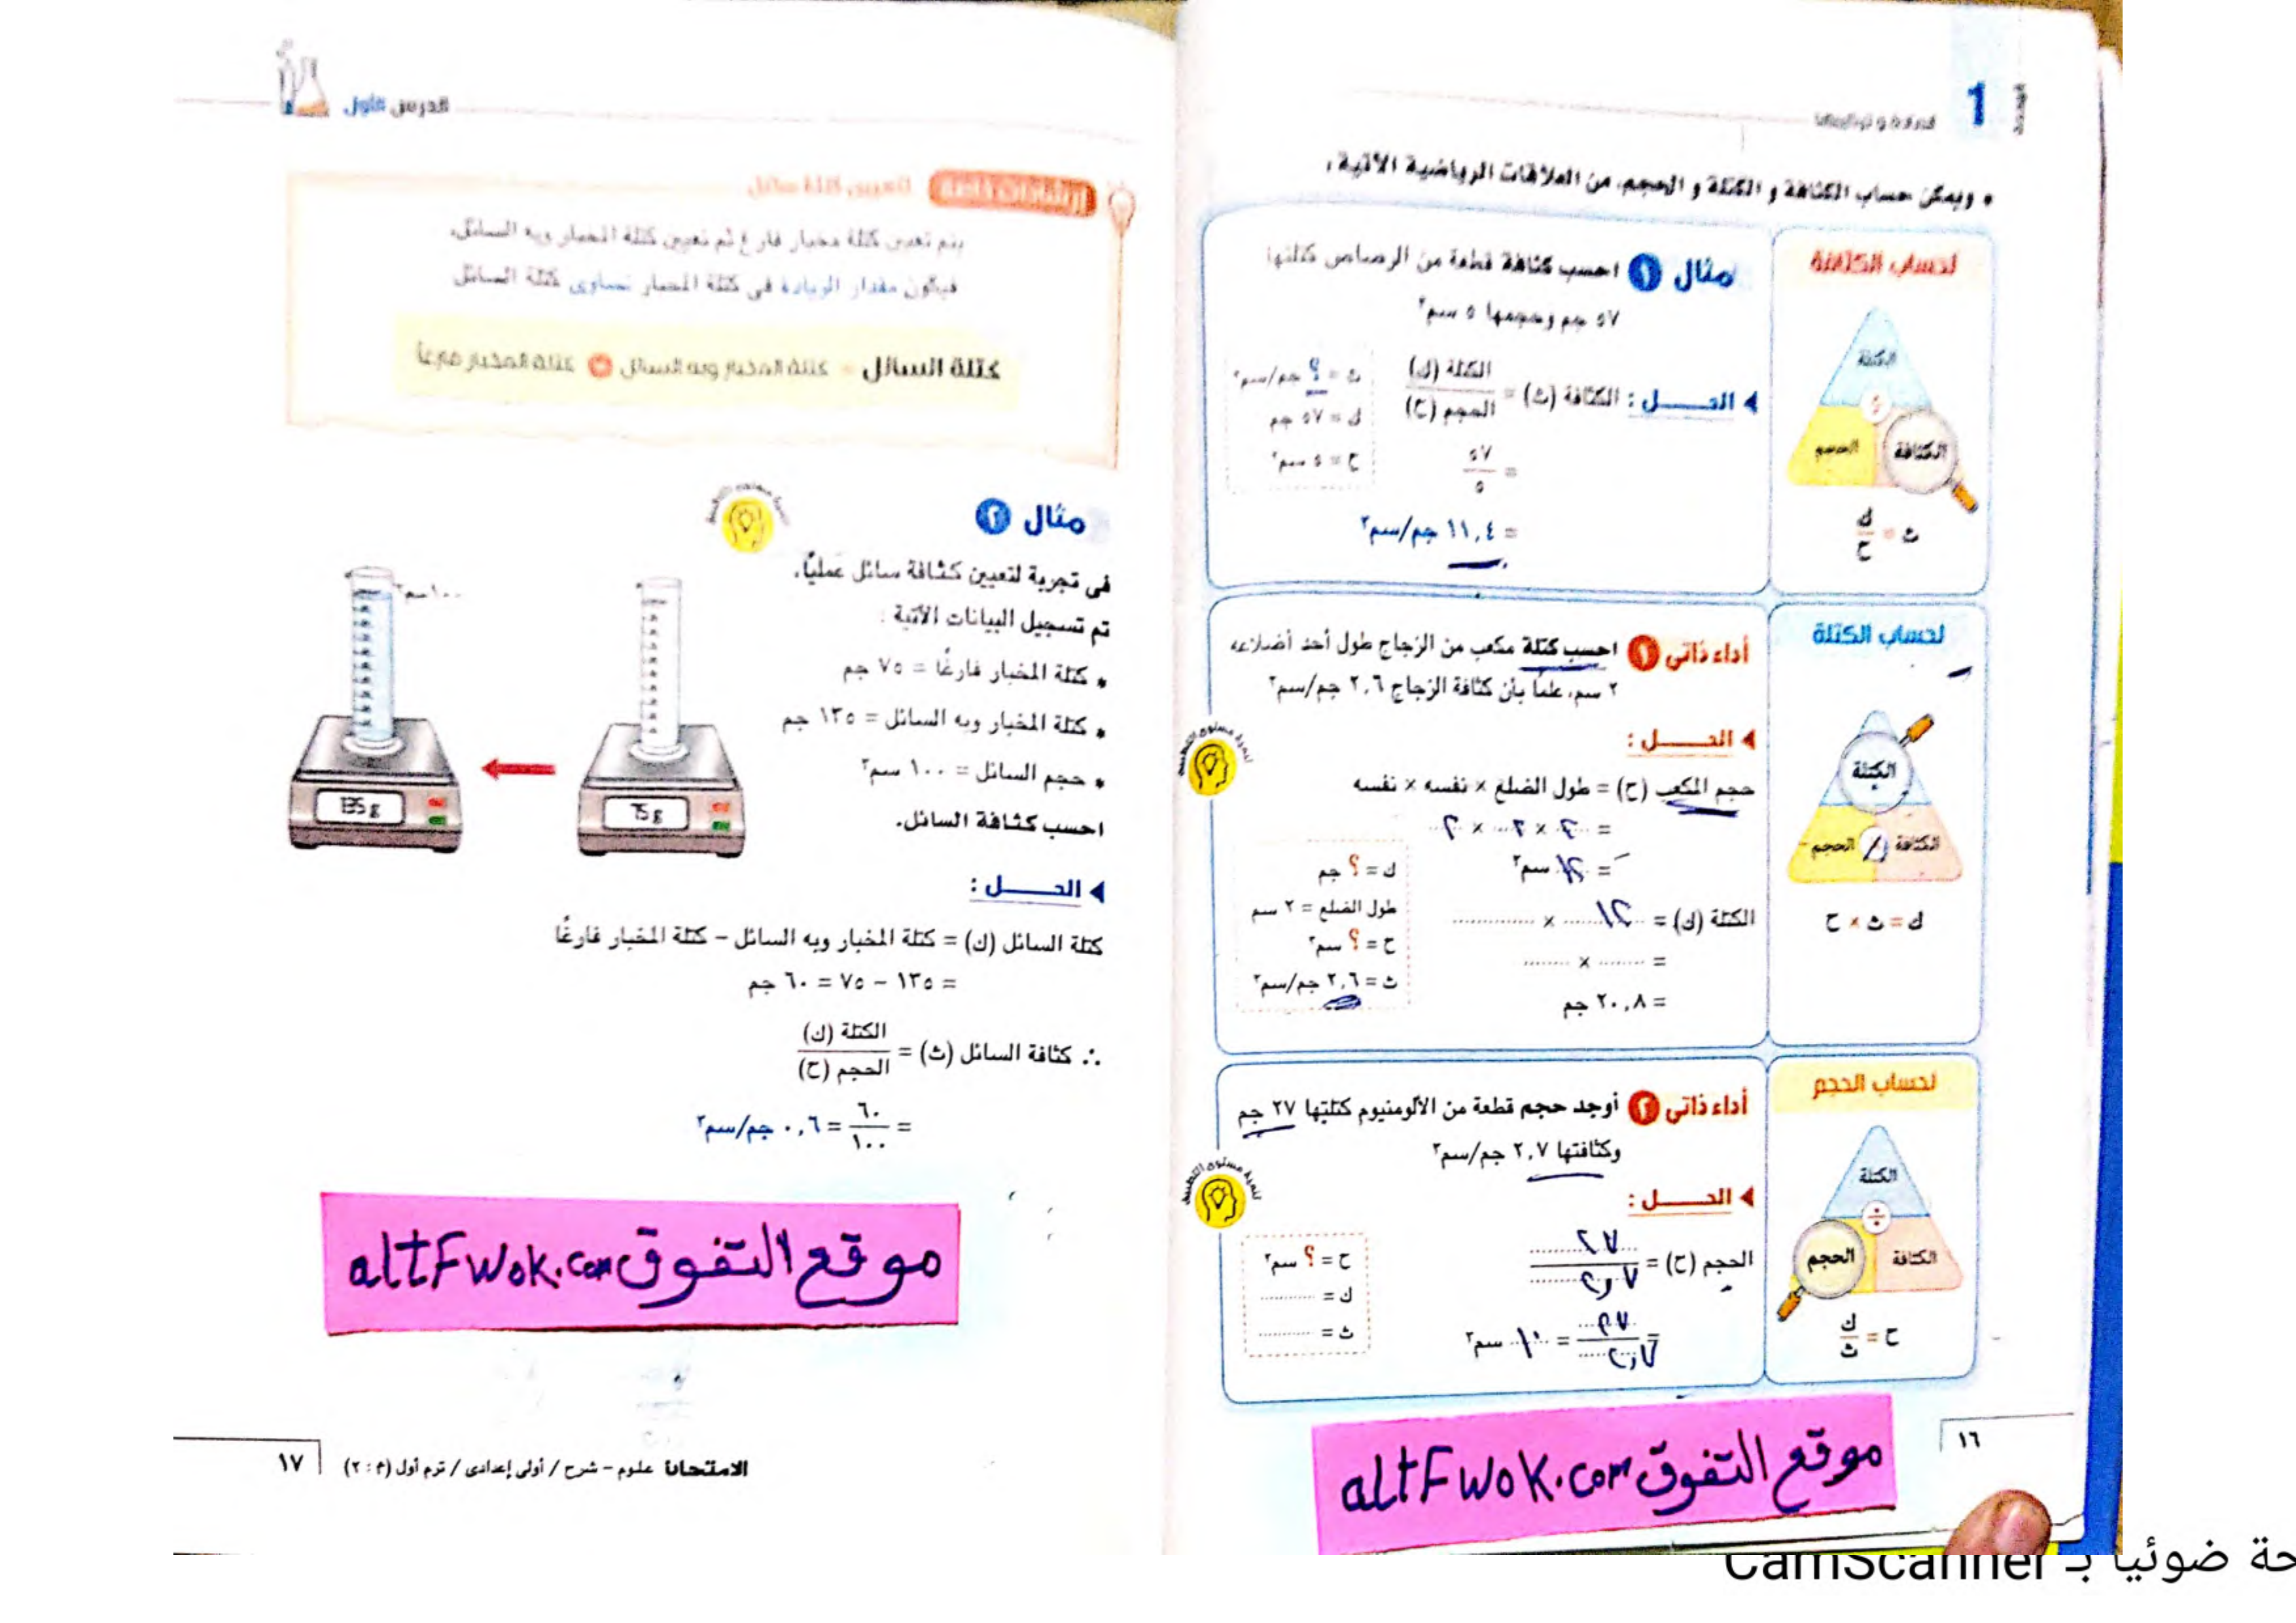 الوحدة
1
المادة و تركيبها
• ويمكن حساب الكثافة و الكتلة و الحجم، من العلاقات الرياضية الآتية :
لحساب الكثافة
الكتلة
÷
الكثافة
الحجم
ث = ك / ح
مثال ١ احسب كثافة قطعة من الرصاص كتلتها
٥٧ جم وحجمها ٥ سم٣
الحــــل : الكثافة (ث) = الكتلة (ك) / الحجم (ح)
= ٥٧ / ٥
= ١١,٤ جم/سم٣
ث = ؟ جم/سم٣
ك = ٥٧ جم
ح = ٥ سم٣
لحساب الكتلة
الكتلة
الكثافة
الحجم
ك = ث × ح
أداء ذاتى ١ احسب كتلة مكعب من الزجاج طول أحد أضلاعه
٢ سم، علمًا بأن كثافة الزجاج ٢,٦ جم/سم٣
الحــــل :
تنمية مستوى التطبيق
حجم المكعب (ح) = طول الضلع × نفسه × نفسه
= ٢ × ٢ × ٢
= سم٣
الكتلة (ك) = ........ × ........
= ........ × ........
= ٢٠,٨ جم
ك = ؟ جم
طول الضلع = ٢ سم
ح = ؟ سم٣
ث = ٢,٦ جم/سم٣
لحساب الحجم
الكتلة
÷
الكثافة
الحجم
ح = ك / ث
أداء ذاتى ٢ أوجد حجم قطعة من الألومنيوم كتلتها ٢٧ جم
وكثافتها ٢,٧ جم/سم٣
الحــــل :
تنمية مستوى التطبيق
الحجم (ح) = ٢٧ / ٢,٧
= ٢٧ / ٢,٧ = ١٠ سم٣
ح = ؟ سم٣
ك = ........
ث = ........
موقع التفوق altFwok.com
١٦
الدرس الأول
إرشادات هامة لتعيين كتلة سائل
يتم تعيين كتلة مخبار فارغ ثم تعيين كتلة المخبار وبه السائل،
فيكون مقدار الزيادة فى كتلة المخبار تساوى كتلة السائل
كتلة السائل = كتلة المخبار وبه السائل - كتلة المخبار فارغًا
مثال ٢
فى تجربة لتعيين كثافة سائل عمليًا،
تم تسجيل البيانات الآتية :
* كتلة المخبار فارغًا = ٧٥ جم
* كتلة المخبار وبه السائل = ١٣٥ جم
* حجم السائل = ١٠٠ سم٣
احسب كثافة السائل.
١٠٠سم٣
75 g
135 g
الحــــل :
كتلة السائل (ك) = كتلة المخبار وبه السائل – كتلة المخبار فارغًا
= ١٣٥ – ٧٥ = ٦٠ جم
∴ كثافة السائل (ث) = الكتلة (ك) / الحجم (ح)
= ٦٠ / ١٠٠ = ٠,٦ جم/سم٣
موقع التفوق altFwok.com
الامتحان علوم – شرح / أولى إعدادى / ترم أول (م : ٢)
١٧
حة ضوئيا بـ CamScanner